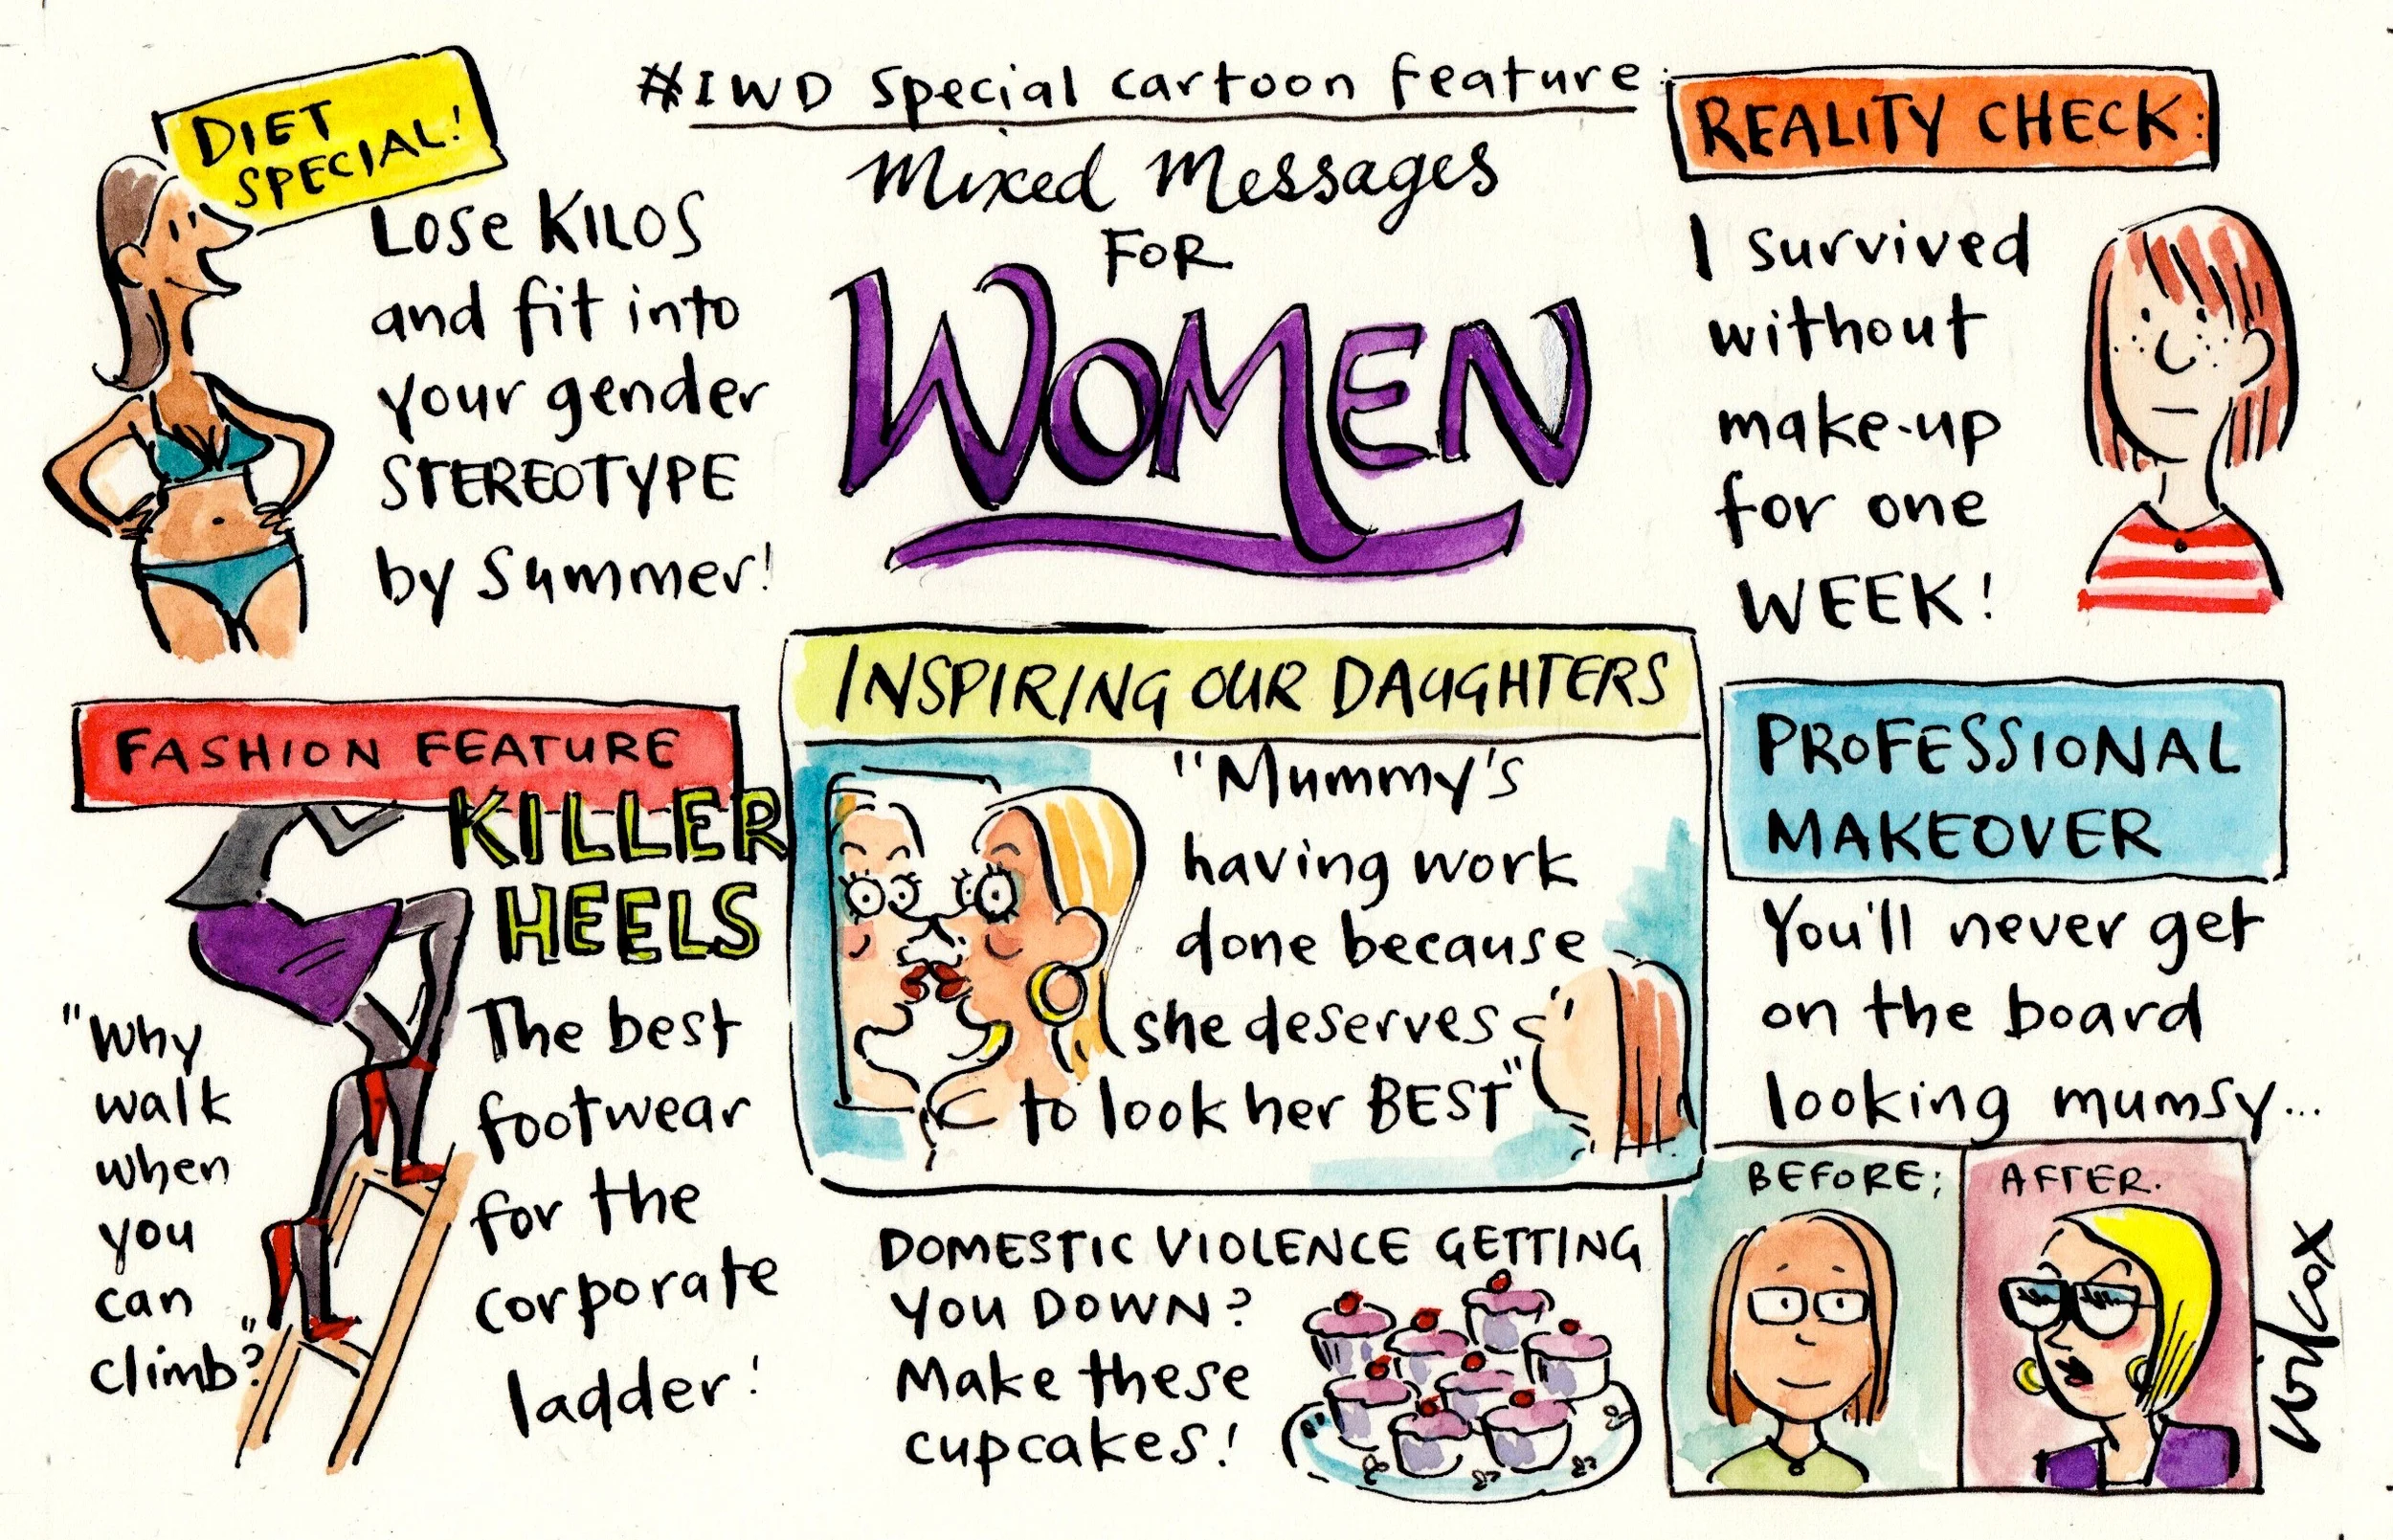 #IWD Special cartoon feature:
Mixed Messages
FOR
WOMEN
DIET
SPECIAL!
Lose KILOS
and fit into
your gender
STEREOTYPE
by Summer!
REALITY CHECK:
I survived
without
make-up
for one
WEEK!
FASHION FEATURE
KILLER
HEELS
The best
footwear
for the
corporate
ladder!
"Why
walk
when
you
can
climb?"
INSPIRING OUR DAUGHTERS
"Mummy's
having work
done because
she deserves
to look her BEST"
DOMESTIC VIOLENCE GETTING
YOU DOWN?
Make these
cupcakes!
PROFESSIONAL
MAKEOVER
You'll never get
on the board
looking mumsy...
BEFORE:
AFTER.
Wilcox